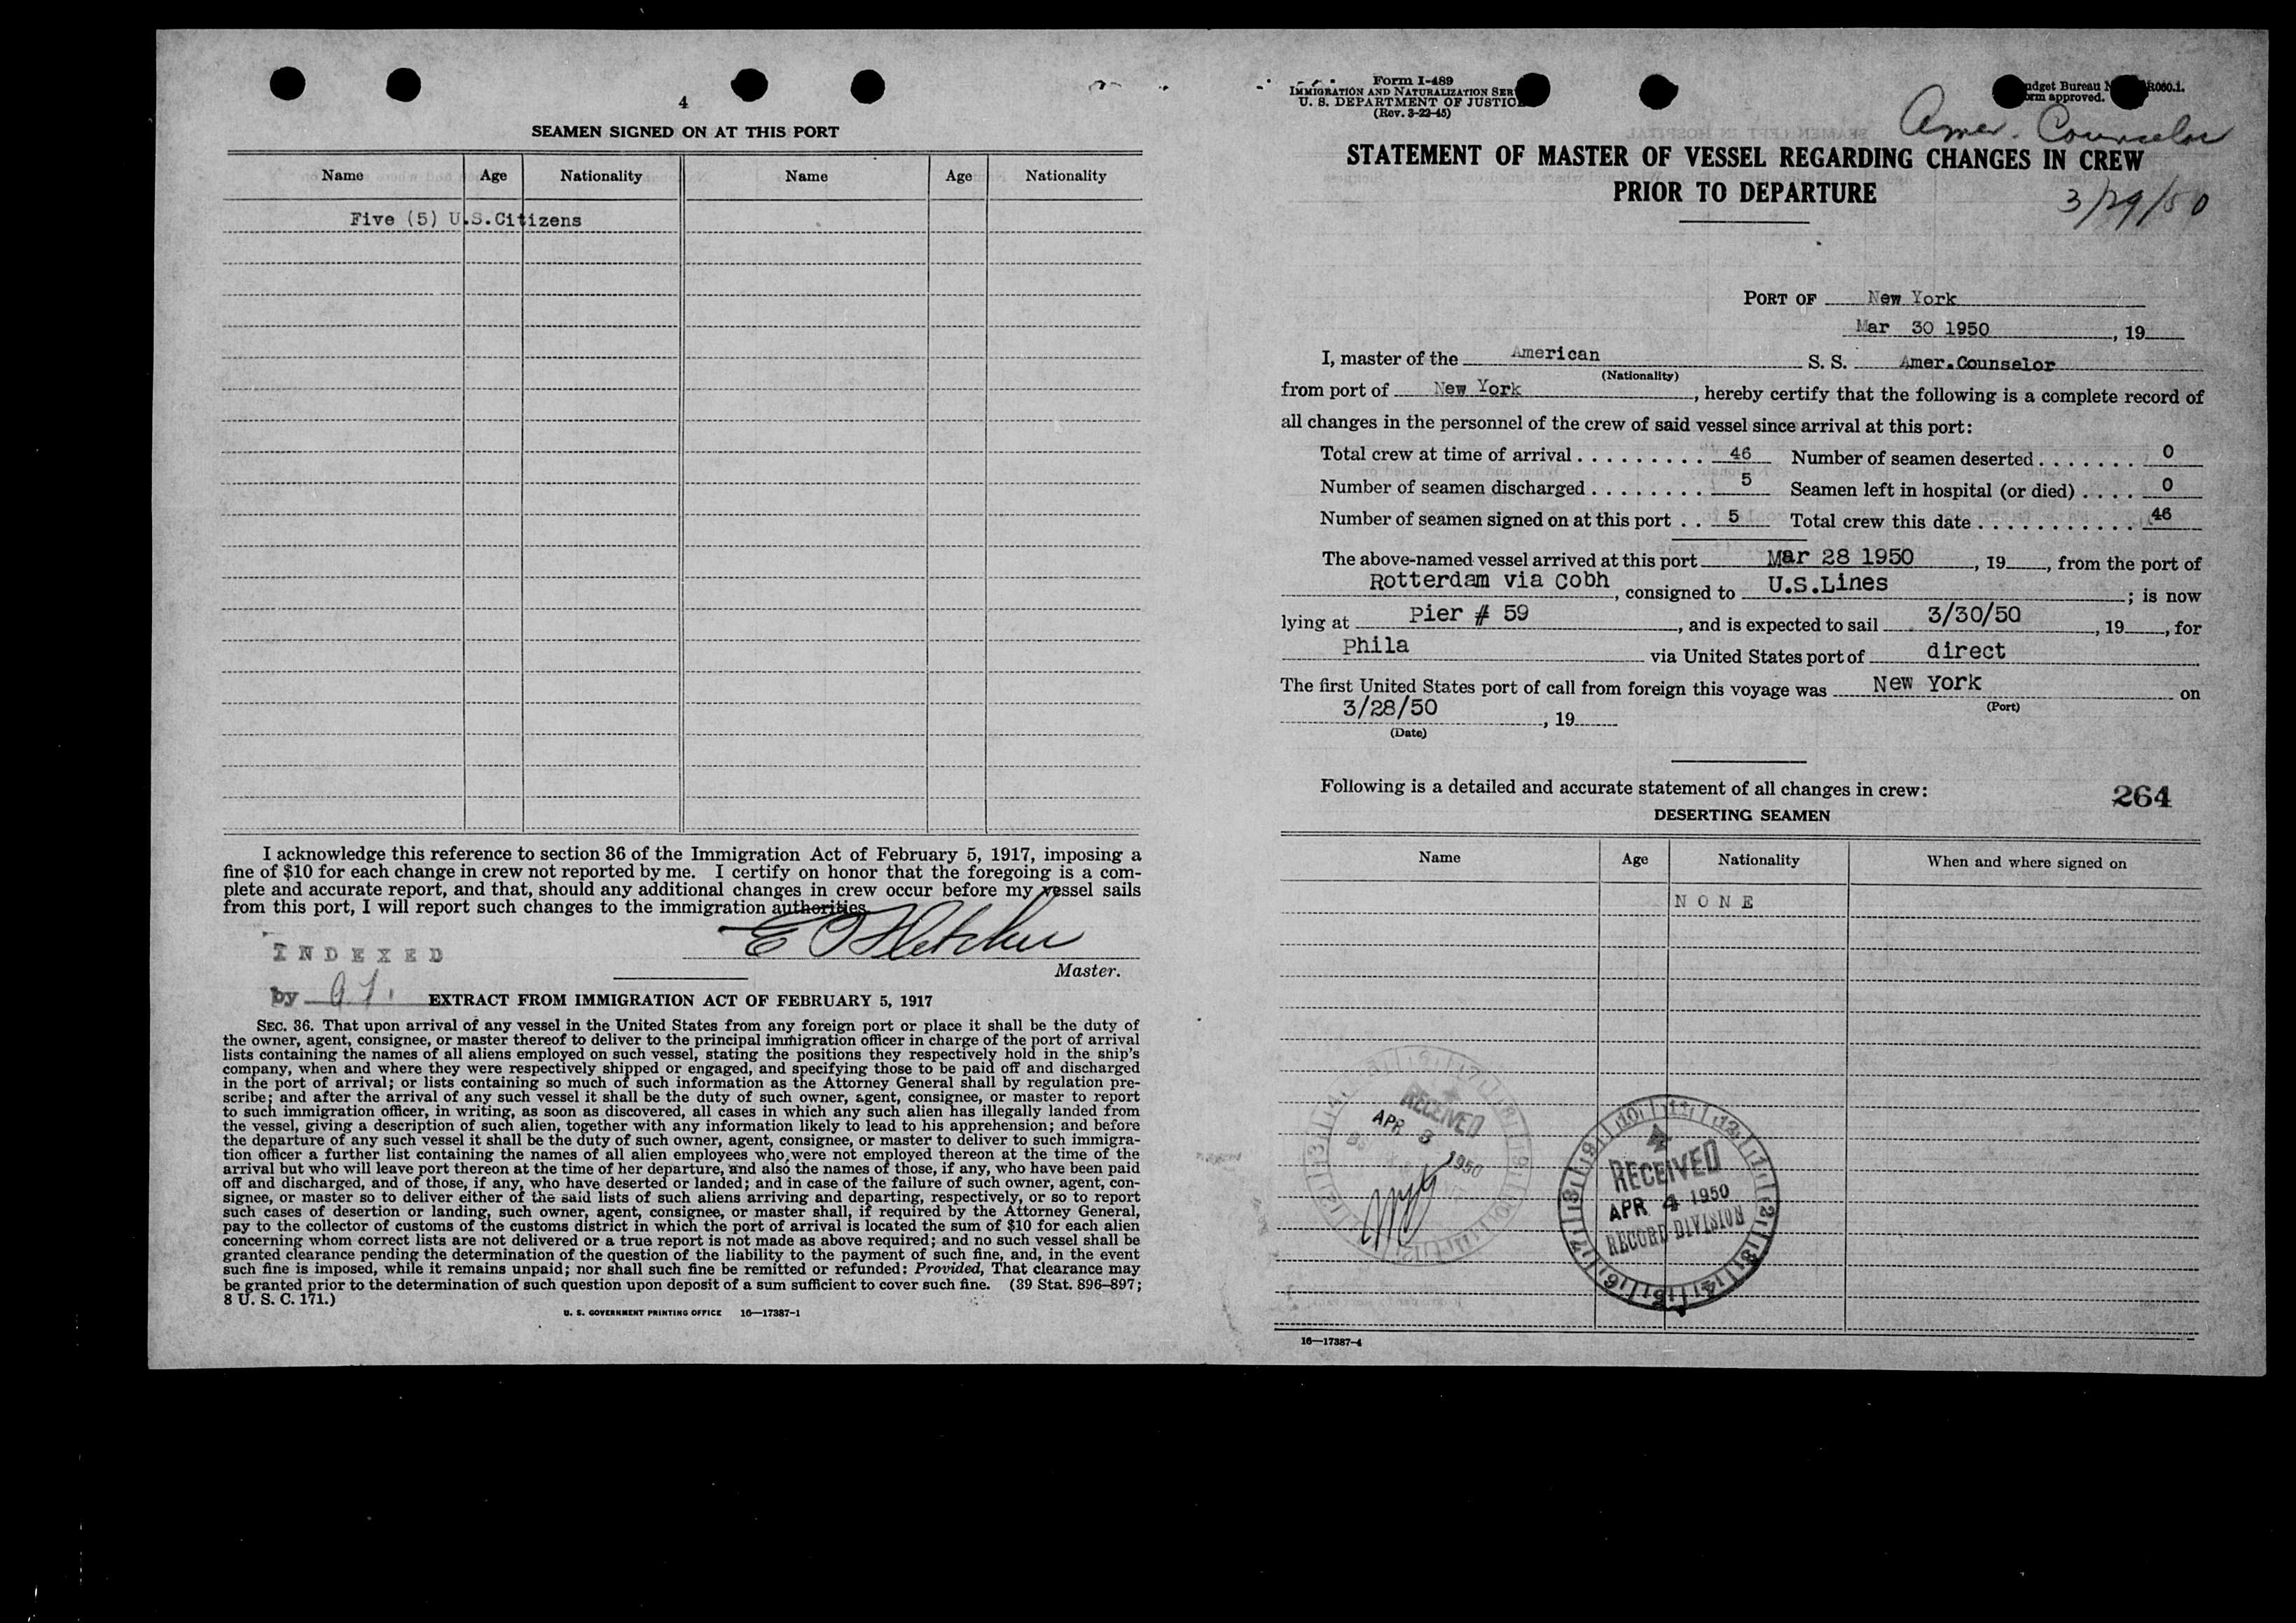 4
SEAMEN SIGNED ON AT THIS PORT
Name Age Nationality Name Age Nationality
Five (5) U.S.Citizens
I acknowledge this reference to section 36 of the Immigration Act of February 5, 1917, imposing a
fine of $10 for each change in crew not reported by me. I certify on honor that the foregoing is a com-
plete and accurate report, and that, should any additional changes in crew occur before my vessel sails
from this port, I will report such changes to the immigration authorities.
E O Fletcher
Master.
INDEXED
by
EXTRACT FROM IMMIGRATION ACT OF FEBRUARY 5, 1917
SEC. 36. That upon arrival of any vessel in the United States from any foreign port or place it shall be the duty of
the owner, agent, consignee, or master thereof to deliver to the principal immigration officer in charge of the port of arrival
lists containing the names of all aliens employed on such vessel, stating the positions they respectively hold in the ship's
company, when and where they were respectively shipped or engaged, and specifying those to be paid off and discharged
in the port of arrival; or lists containing so much of such information as the Attorney General shall by regulation pre-
scribe; and after the arrival of any such vessel it shall be the duty of such owner, agent, consignee, or master to report
to such immigration officer, in writing, as soon as discovered, all cases in which any such alien has illegally landed from
the vessel, giving a description of such alien, together with any information likely to lead to his apprehension; and before
the departure of any such vessel it shall be the duty of such owner, agent, consignee, or master to deliver to such immigra-
tion officer a further list containing the names of all alien employees who were not employed thereon at the time of the
arrival but who will leave port thereon at the time of her departure, and also the names of those, if any, who have been paid
off and discharged, and of those, if any, who have deserted or landed; and in case of the failure of such owner, agent, con-
signee, or master so to deliver either of the said lists of such aliens arriving and departing, respectively, or so to report
such cases of desertion or landing, such owner, agent, consignee, or master shall, if required by the Attorney General,
pay to the collector of customs of the customs district in which the port of arrival is located the sum of $10 for each alien
concerning whom correct lists are not delivered or a true report is not made as above required; and no such vessel shall be
granted clearance pending the determination of the question of the liability to the payment of such fine, and, in the event
such fine is imposed, while it remains unpaid; nor shall such fine be remitted or refunded: Provided, That clearance may
be granted prior to the determination of such question upon deposit of a sum sufficient to cover such fine. (39 Stat. 896–897;
8 U. S. C. 171.)
U. S. GOVERNMENT PRINTING OFFICE 16—17387-1
Form I-489
IMMIGRATION AND NATURALIZATION SER
U. S. DEPARTMENT OF JUSTICE
(Rev. 3-22-45)
dget Bureau N R060.1.
rm approved.
Amer. Counselor
STATEMENT OF MASTER OF VESSEL REGARDING CHANGES IN CREW
PRIOR TO DEPARTURE
3/29/50
PORT OF New York
Mar 30 1950, 19
I, master of the American S. S. Amer.Counselor
(Nationality)
from port of New York, hereby certify that the following is a complete record of
all changes in the personnel of the crew of said vessel since arrival at this port:
Total crew at time of arrival 46 Number of seamen deserted 0
Number of seamen discharged 5 Seamen left in hospital (or died) 0
Number of seamen signed on at this port 5 Total crew this date 46
The above-named vessel arrived at this port Mar 28 1950, 19, from the port of
Rotterdam via Cobh, consigned to U.S.Lines; is now
lying at Pier # 59, and is expected to sail 3/30/50, 19, for
Phila via United States port of direct
The first United States port of call from foreign this voyage was New York on
(Port)
3/28/50, 19
(Date)
Following is a detailed and accurate statement of all changes in crew:
264
DESERTING SEAMEN
Name Age Nationality When and where signed on
NONE
RECEIVED
APR 3 1950
RECEIVED
APR 4 1950
RECORD DIVISION
16—17387-4